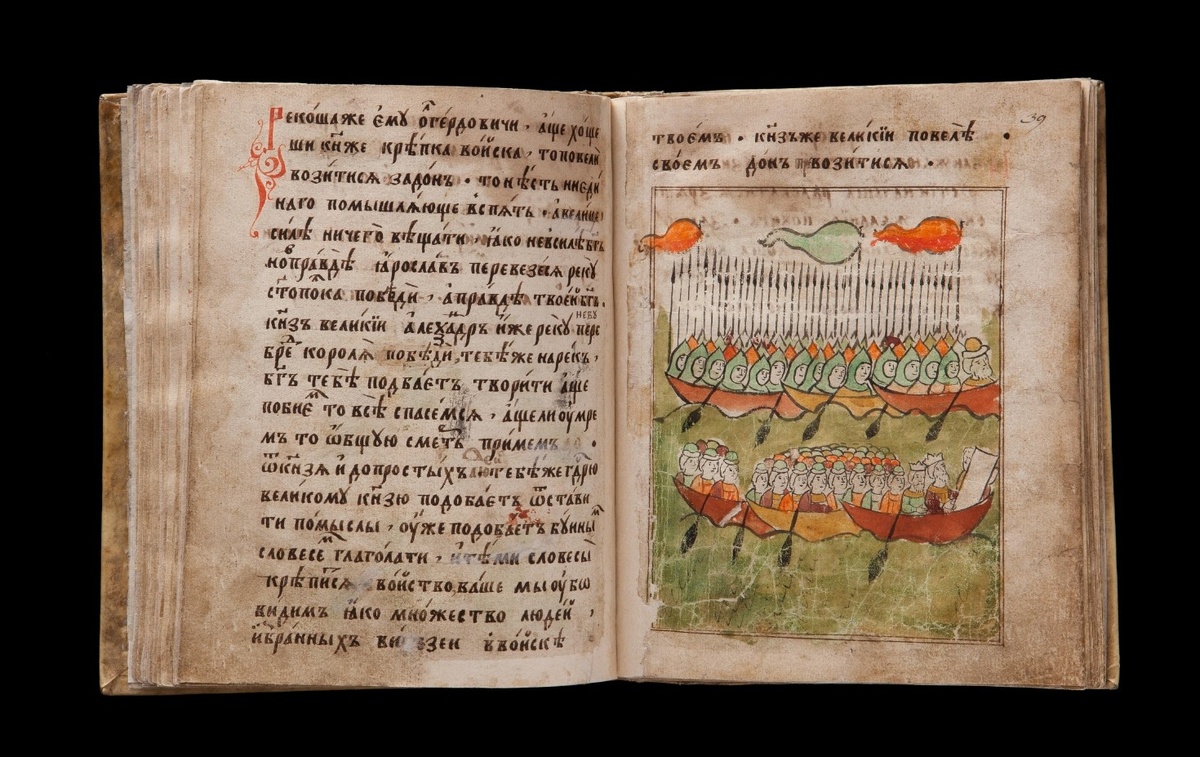 Рекошаже ємꙋ ѻ҆гердовичи , аще хоще
ши кн҃же крѣпка войска , то повели
возитися задонъ · то нѣсть ниеди
наго помышляюще вспять · а велицеи
силѣ ничего вѣщати , ꙗко не в силѣ бг҃ъ
но в правдѣ ꙗрославъ перевезеся рекꙋ
ст҃ополка побѣди , а правдѣ твоей бг҃ъ .
кн҃зь великїи алеѯадръ иже рекꙋ невꙋ пере
бре короля побѣди , тебѣ же нарек ,
бг҃ъ тебѣ подбаетъ творити аще
побиєм то всѣ спасемся , аще ли оумре
мъ то ѡбщꙋю сметь примемъ .
ѿ кн҃зя и до простыхъ тебѣ же гдрю
великомꙋ кн҃зю подобаетъ ѿстави
ти помыслы , оуже подобаетъ бꙋиными
словесем глаголати , и тѣми словесы
крѣпися войство ваше мы оубѡ
видимъ ꙗко множество людей ,
избранныхъ в войскѣ
39
твоемъ · кн҃зь же великїи повелѣ ·
своемъ донъ возитися ·